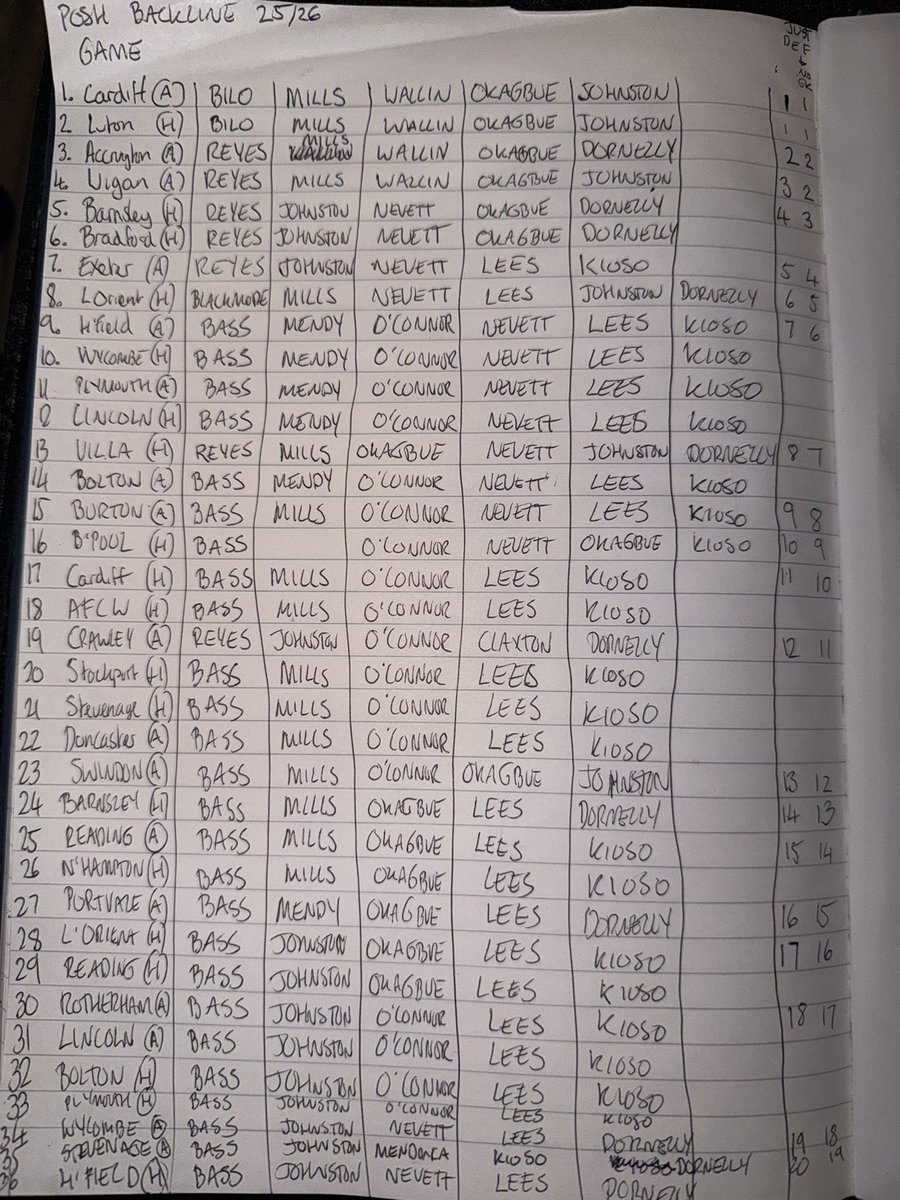 POSH BACKLINE 25/26
GAME
JUST
DEF
NO
GK
1. Cardiff (A) BILO MILLS WALLIN OKAGBUE JOHNSTON 1 1
2 Luton (H) BILO MILLS WALLIN OKAGBUE JOHNSTON 1 1
3. Accrington (A) REYES MILLS WALLIN OKAGBUE DORNELLY 2 2
4. Wigan (A) REYES MILLS WALLIN OKAGBUE JOHNSTON 3 2
5. Barnsley (H) REYES JOHNSTON NEVETT OKAGBUE DORNELLY 4 3
6. Bradford (H) REYES JOHNSTON NEVETT OKAGBUE DORNELLY
7. Exeter (A) REYES JOHNSTON NEVETT LEES KIOSO 5 4
8. LOrient (H) BLACKMORE MILLS NEVETT LEES JOHNSTON DORNELLY 6 5
9. H'field (A) BASS MENDY O'CONNOR NEVETT LEES KIOSO 7 6
10. WYCOMBE (H) BASS MENDY O'CONNOR NEVETT LEES KIOSO
11. PLYMOUTH (A) BASS MENDY O'CONNOR NEVETT LEES KIOSO
12 LINCOLN (H) BASS MENDY O'CONNOR NEVETT LEES KIOSO
13 VILLA (H) REYES MILLS OKAGBUE NEVETT JOHNSTON DORNELLY 8 7
14 BOLTON (A) BASS MENDY O'CONNOR NEVETT LEES KIOSO
15 BURTON (A) BASS MILLS O'CONNOR NEVETT LEES KIOSO 9 8
16 B'POOL (H) BASS O'CONNOR NEVETT OKAGBUE KIOSO 10 9
17 Cardiff (H) BASS MILLS O'CONNOR LEES KIOSO 11 10
18 AFCW (H) BASS MILLS O'CONNOR LEES KIOSO
19 CRAWLEY (A) REYES JOHNSTON O'CONNOR CLAXTON DORNELLY 12 11
20 Stockport (H) BASS MILLS O'CONNOR LEES KIOSO
21 Stevenage (H) BASS MILLS O'CONNOR LEES KIOSO
22 Doncaster (A) BASS MILLS O'CONNOR LEES KIOSO
23 SWINDON (A) BASS MILLS O'CONNOR OKAGBUE JOHNSTON 13 12
24 BARNSLEY (H) BASS MILLS OKAGBUE LEES DORNELLY 14 13
25 READING (A) BASS MILLS OKAGBUE LEES KIOSO 15 14
26 N'HAMPTON (H) BASS MILLS OKAGBUE LEES KIOSO
27 PORTVALE (A) BASS MENDY OKAGBUE LEES DORNELLY 16 15
28 L'ORIENT (H) BASS JOHNSTON OKAGBUE LEES KIOSO 17 16
29 READING (H) BASS JOHNSTON OKAGBUE LEES KIOSO
30 ROTHERHAM (A) BASS JOHNSTON O'CONNOR LEES KIOSO 18 17
31 LINCOLN (A) BASS JOHNSTON O'CONNOR LEES KIOSO
32 BOLTON (H) BASS JOHNSTON O'CONNOR LEES KIOSO
33 PLYMOUTH (H) BASS JOHNSTON O'CONNOR LEES KIOSO
34 WYCOMBE (A) BASS JOHNSTON NEVETT LEES DORNELLY 19 18
35 STEVENAGE (A) BASS JOHNSTON MENDONCA KIOSO DORNELLY 20 19
36 H'FIELD (H) BASS JOHNSTON NEVETT LEES DORNELLY